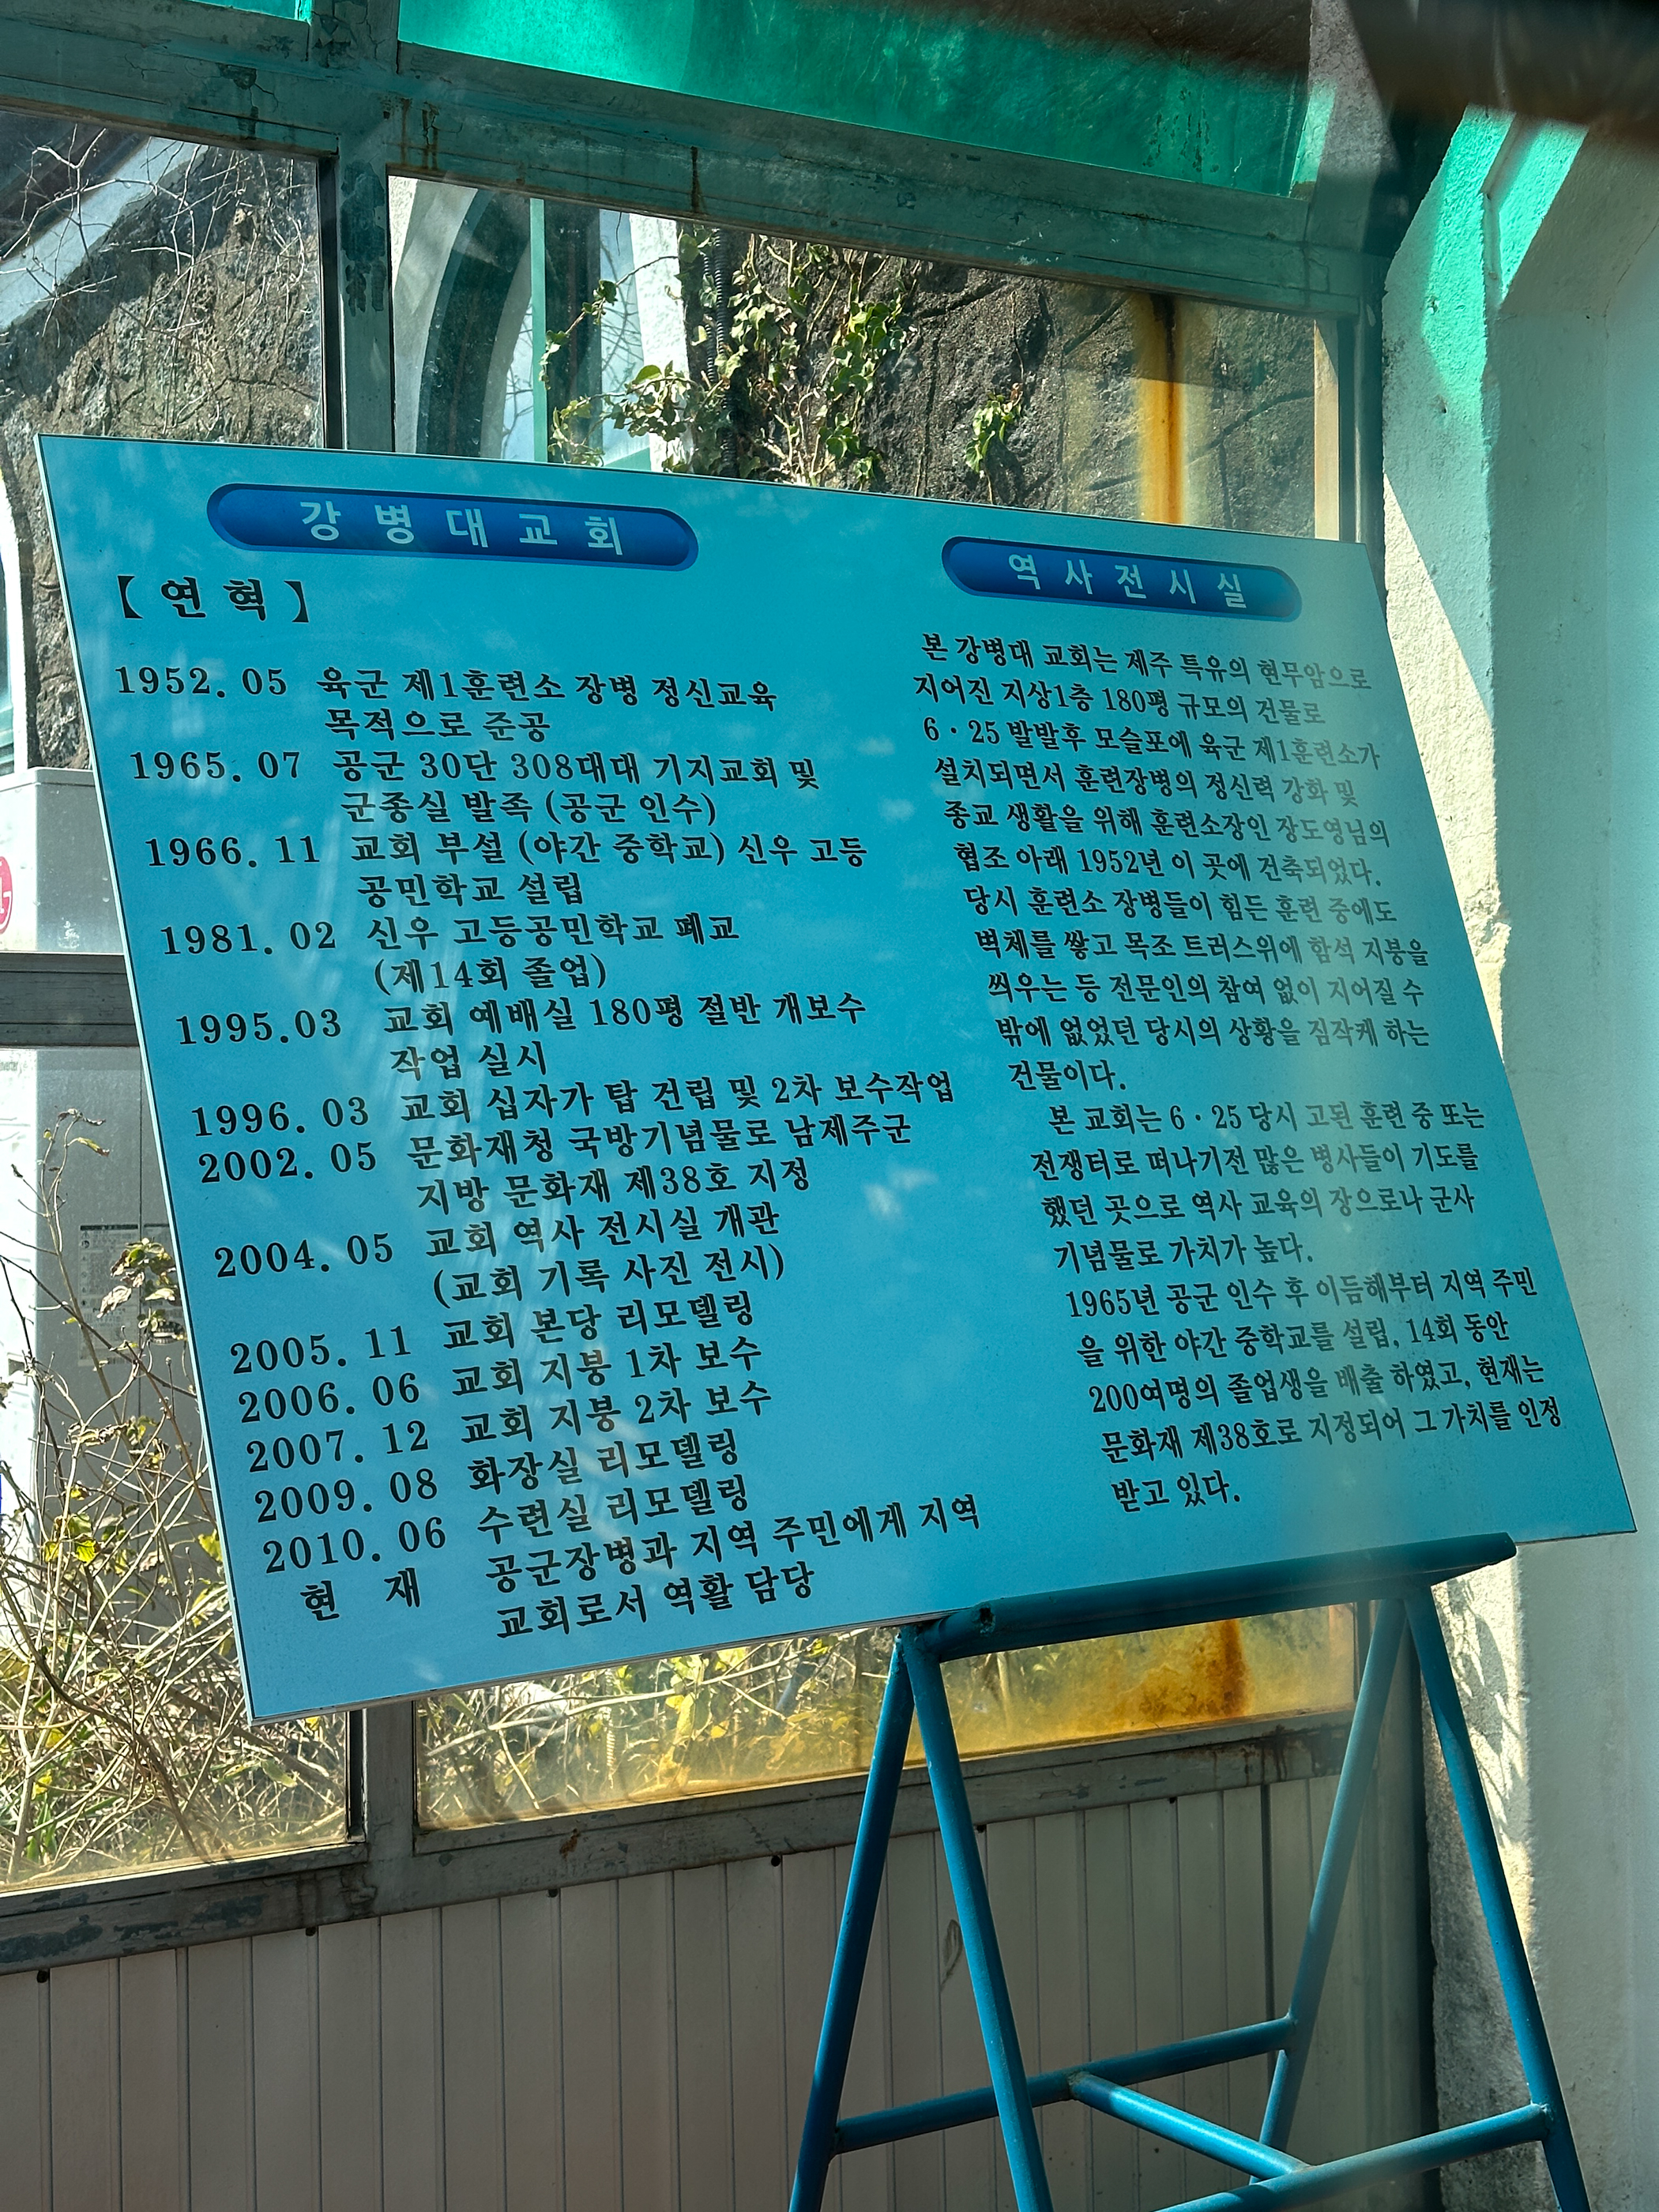 강병대교회
【연혁】
1952. 05 육군 제1훈련소 장병 정신교육
목적으로 준공
1965. 07 공군 30단 308대대 기지교회 및
군종실 발족 (공군 인수)
1966. 11 교회 부설 (야간 중학교) 신우 고등
공민학교 설립
1981. 02 신우 고등공민학교 폐교
(제14회 졸업)
1995.03 교회 예배실 180평 절반 개보수
작업 실시
1996. 03 교회 십자가 탑 건립 및 2차 보수작업
2002. 05 문화재청 국방기념물로 남제주군
지방 문화재 제38호 지정
2004. 05 교회 역사 전시실 개관
(교회 기록 사진 전시)
2005. 11 교회 본당 리모델링
2006. 06 교회 지붕 1차 보수
2007. 12 교회 지붕 2차 보수
2009. 08 화장실 리모델링
2010. 06 수련실 리모델링
현 재 공군장병과 지역 주민에게 지역
교회로서 역활 담당
역사전시실
본 강병대 교회는 제주 특유의 현무암으로
지어진 지상1층 180평 규모의 건물로
6·25 발발후 모슬포에 육군 제1훈련소가
설치되면서 훈련장병의 정신력 강화 및
종교 생활을 위해 훈련소장인 장도영님의
협조 아래 1952년 이 곳에 건축되었다.
당시 훈련소 장병들이 힘든 훈련 중에도
벽체를 쌓고 목조 트러스위에 함석 지붕을
씌우는 등 전문인의 참여 없이 지어질 수
밖에 없었던 당시의 상황을 짐작케 하는
건물이다.
본 교회는 6·25 당시 고된 훈련 중 또는
전쟁터로 떠나기전 많은 병사들이 기도를
했던 곳으로 역사 교육의 장으로나 군사
기념물로 가치가 높다.
1965년 공군 인수 후 이듬해부터 지역 주민
을 위한 야간 중학교를 설립, 14회 동안
200여명의 졸업생을 배출 하였고, 현재는
문화재 제38호로 지정되어 그 가치를 인정
받고 있다.